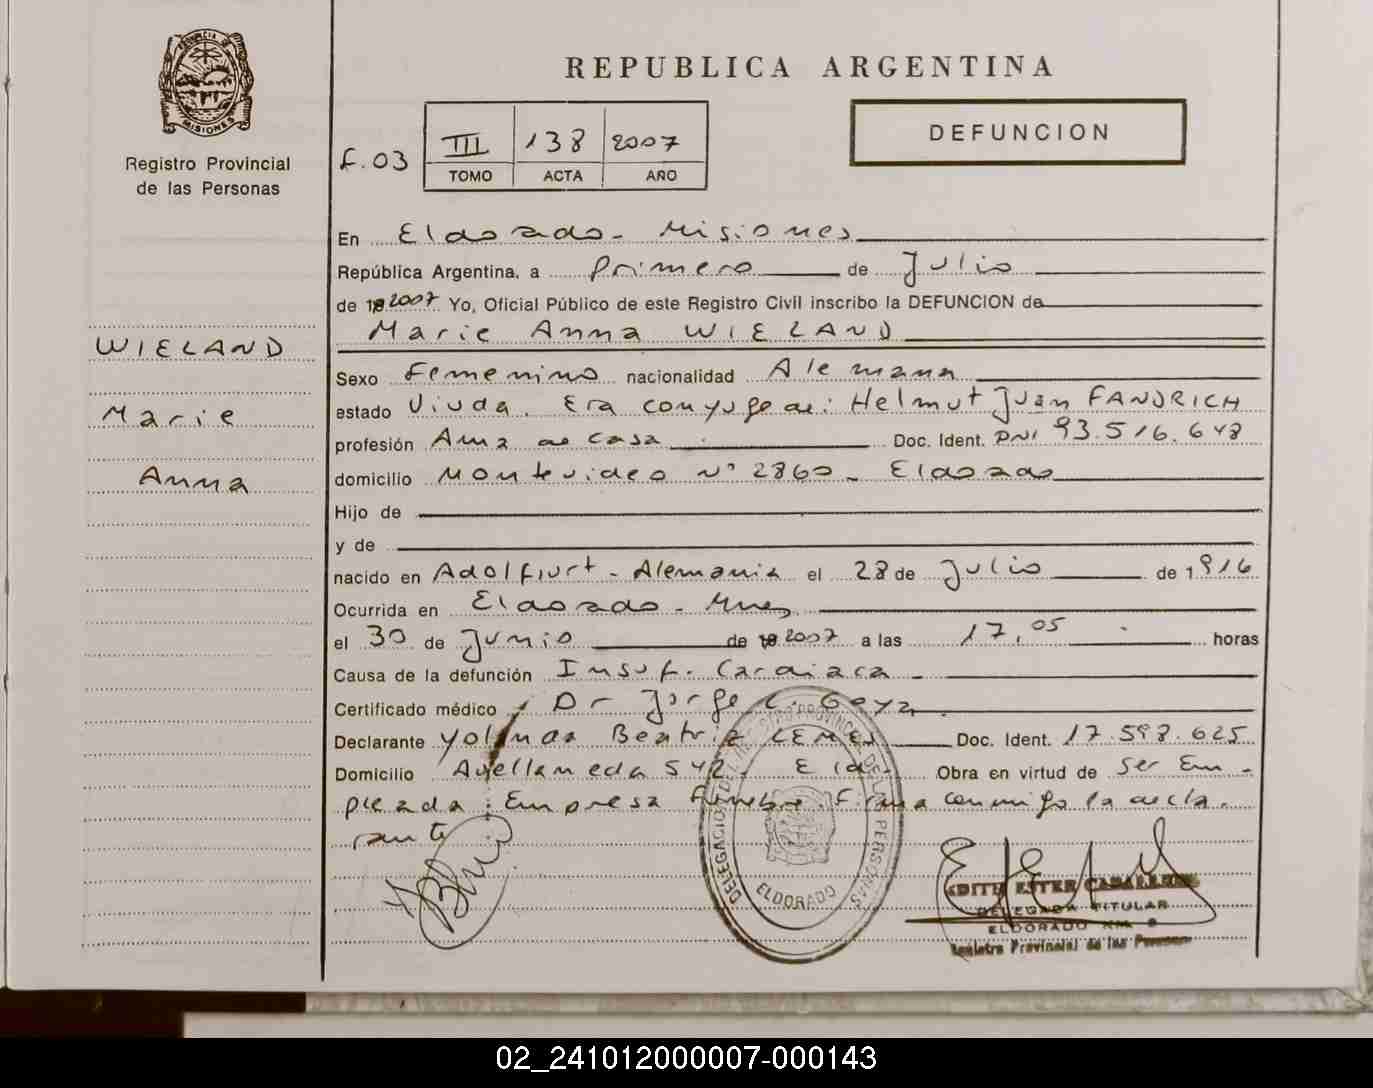 PROVINCIA DE
MISIONES
Registro Provincial
de las Personas
REPUBLICA ARGENTINA
DEFUNCION
F.03
III 138 2007
TOMO ACTA AÑO
WIELAND
Marie
Anna
En Eldorado - Misiones
República Argentina, a Primero de Julio
de 2007 Yo, Oficial Público de este Registro Civil inscribo la DEFUNCION de
Marie Anna WIELAND
Sexo Femenino nacionalidad Alemana
estado Viuda. Era conyuge de: Helmut Juan FANDRICH
profesión Ama de Casa Doc. Ident. DNI 93.516.648
domicilio Montevideo Nº 2860 - Eldorado
Hijo de
y de
nacido en Adolfiurt - Alemania el 28 de Julio de 1916
Ocurrida en Eldorado - Mnes
el 30 de Junio de 2007 a las 17,05 horas
Causa de la defunción Insuf. Cardiaca
Certificado médico Dr Jorge C. Goya
Declarante Yolanda Beatriz LEMES Doc. Ident. 17.598.625
Domicilio Avellaneda 542. Eld. Obra en virtud de Ser Em-
pleada: Empresa Funebre. Firma conmigo la decla-
rante
DELEGACION DEL REGISTRO PROVINCIAL DE LAS PERSONAS
ELDORADO
EDITH ESTER CABALLERO
DELEGADA TITULAR
ELDORADO KM. 9
Registro Provincial de las Personas
02_241012000007-000143